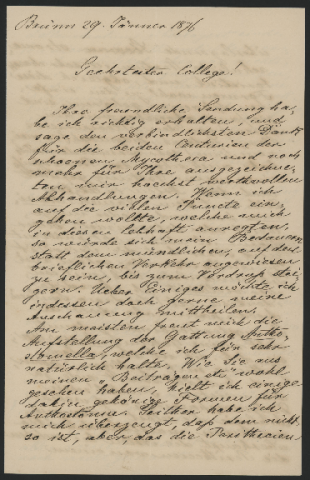 Brünn 29. Jänner 1876
Geehrtester College!
Ihre freundliche Sendung ha-
be ich richtig erhalten, und
sage den verbindlichsten Dank
für die beiden Centurien der
schoenen Mycotheca und noch
mehr für Ihre ausgezeichne-
ten mir hoechst werthvollen
Abhandlungen. Wenn ich
auf die vielen Puncte ein-
gehen wollte, welche mich
in diesen lebhaft anregten,
so würde sich mein Bedauern
statt dem mündlichen, auf den
brieflichen Verkehr angewiesen
zu sein, bis zum Verdruß stei-
gern. Ueber Einiges möchte ich
indessen doch gerne meine
Anschauung mittheilen.
Am meisten freut mich die
Aufstellung der Gattung Antho-
stomella, welche ich für sehr
natürlich halte. Wie Sie aus
meinen Beiträgen etc wohl
gesehen haben, hielt ich einige
dahin gehörige Formen für
Anthostoma. Seither habe ich
mich überzeugt, daß dem nicht
so ist, aber, das die Perithecien